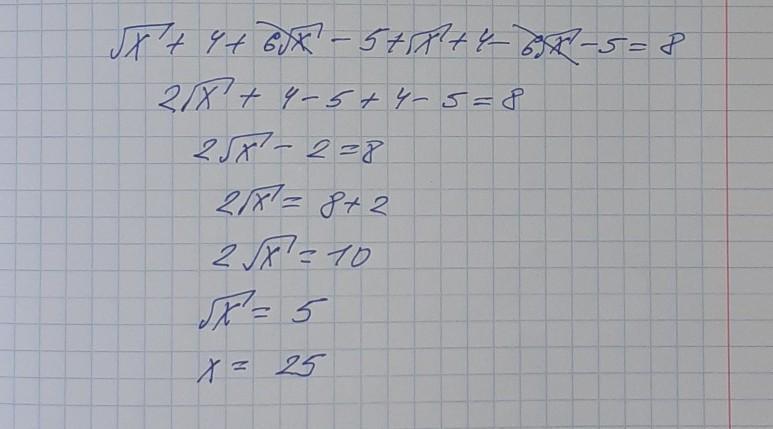 √x + 4 + 6√x - 5 + √x + 4 - 6√x - 5 = 8
2√x + 4 - 5 + 4 - 5 = 8
2√x - 2 = 8
2√x = 8 + 2
2√x = 10
√x = 5
x = 25